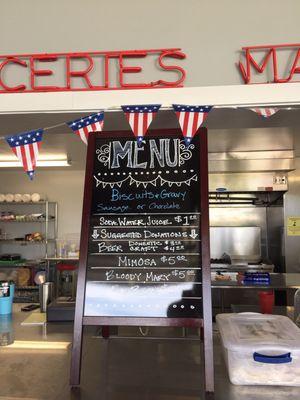 CERIES
MA
MENU
BISCUITS & GRAVY
SAUSAGE or CHOCOLATE
SODA WATER JUICE $1
SUGGESTED DONATIONS
BEER DOMESTIC $3
CRAFT $4
MIMOSA $5
BLOODY MARY $5